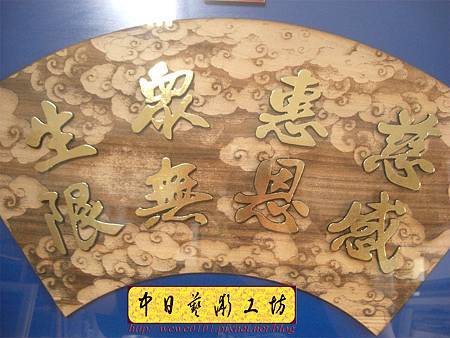 慈惠眾生
感恩無限
中日藝彫工坊
http://wewe0101.pixnet.net/blog